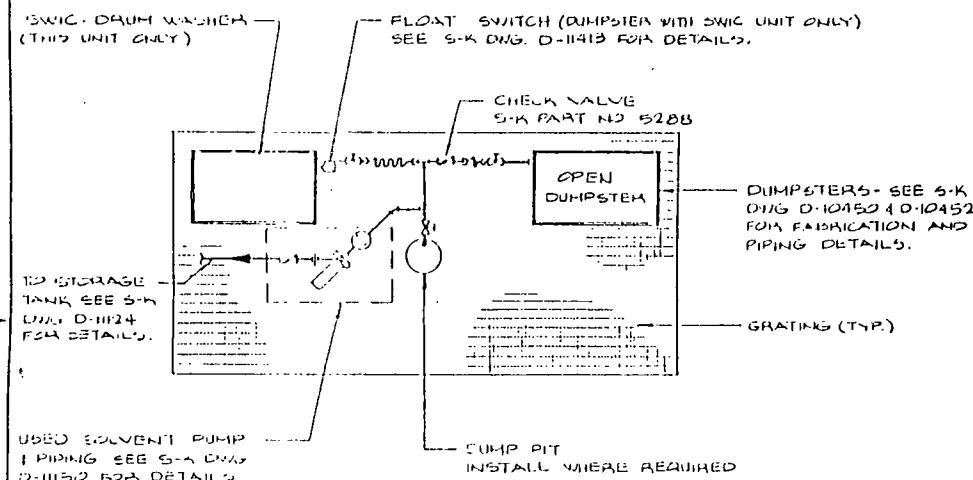 SWIC. DRUM WASHER
(THIS UNIT ONLY)
FLOAT SWITCH (DUMPSTER WITH SWIC UNIT ONLY)
SEE S-K DWG. D-11413 FOR DETAILS.
CHECK VALVE
S-K PART NO 5288
OPEN
DUMPSTER
DUMPSTERS - SEE S-K
DWG D-10450 & D-10452
FOR FABRICATION AND
PIPING DETAILS.
TO STORAGE
TANK SEE S-K
DWG D-11124
FOR DETAILS.
GRATING (TYP.)
USED SOLVENT PUMP
& PIPING SEE S-K DWG
FOR DETAILS
SUMP PIT
INSTALL WHERE REQUIRED